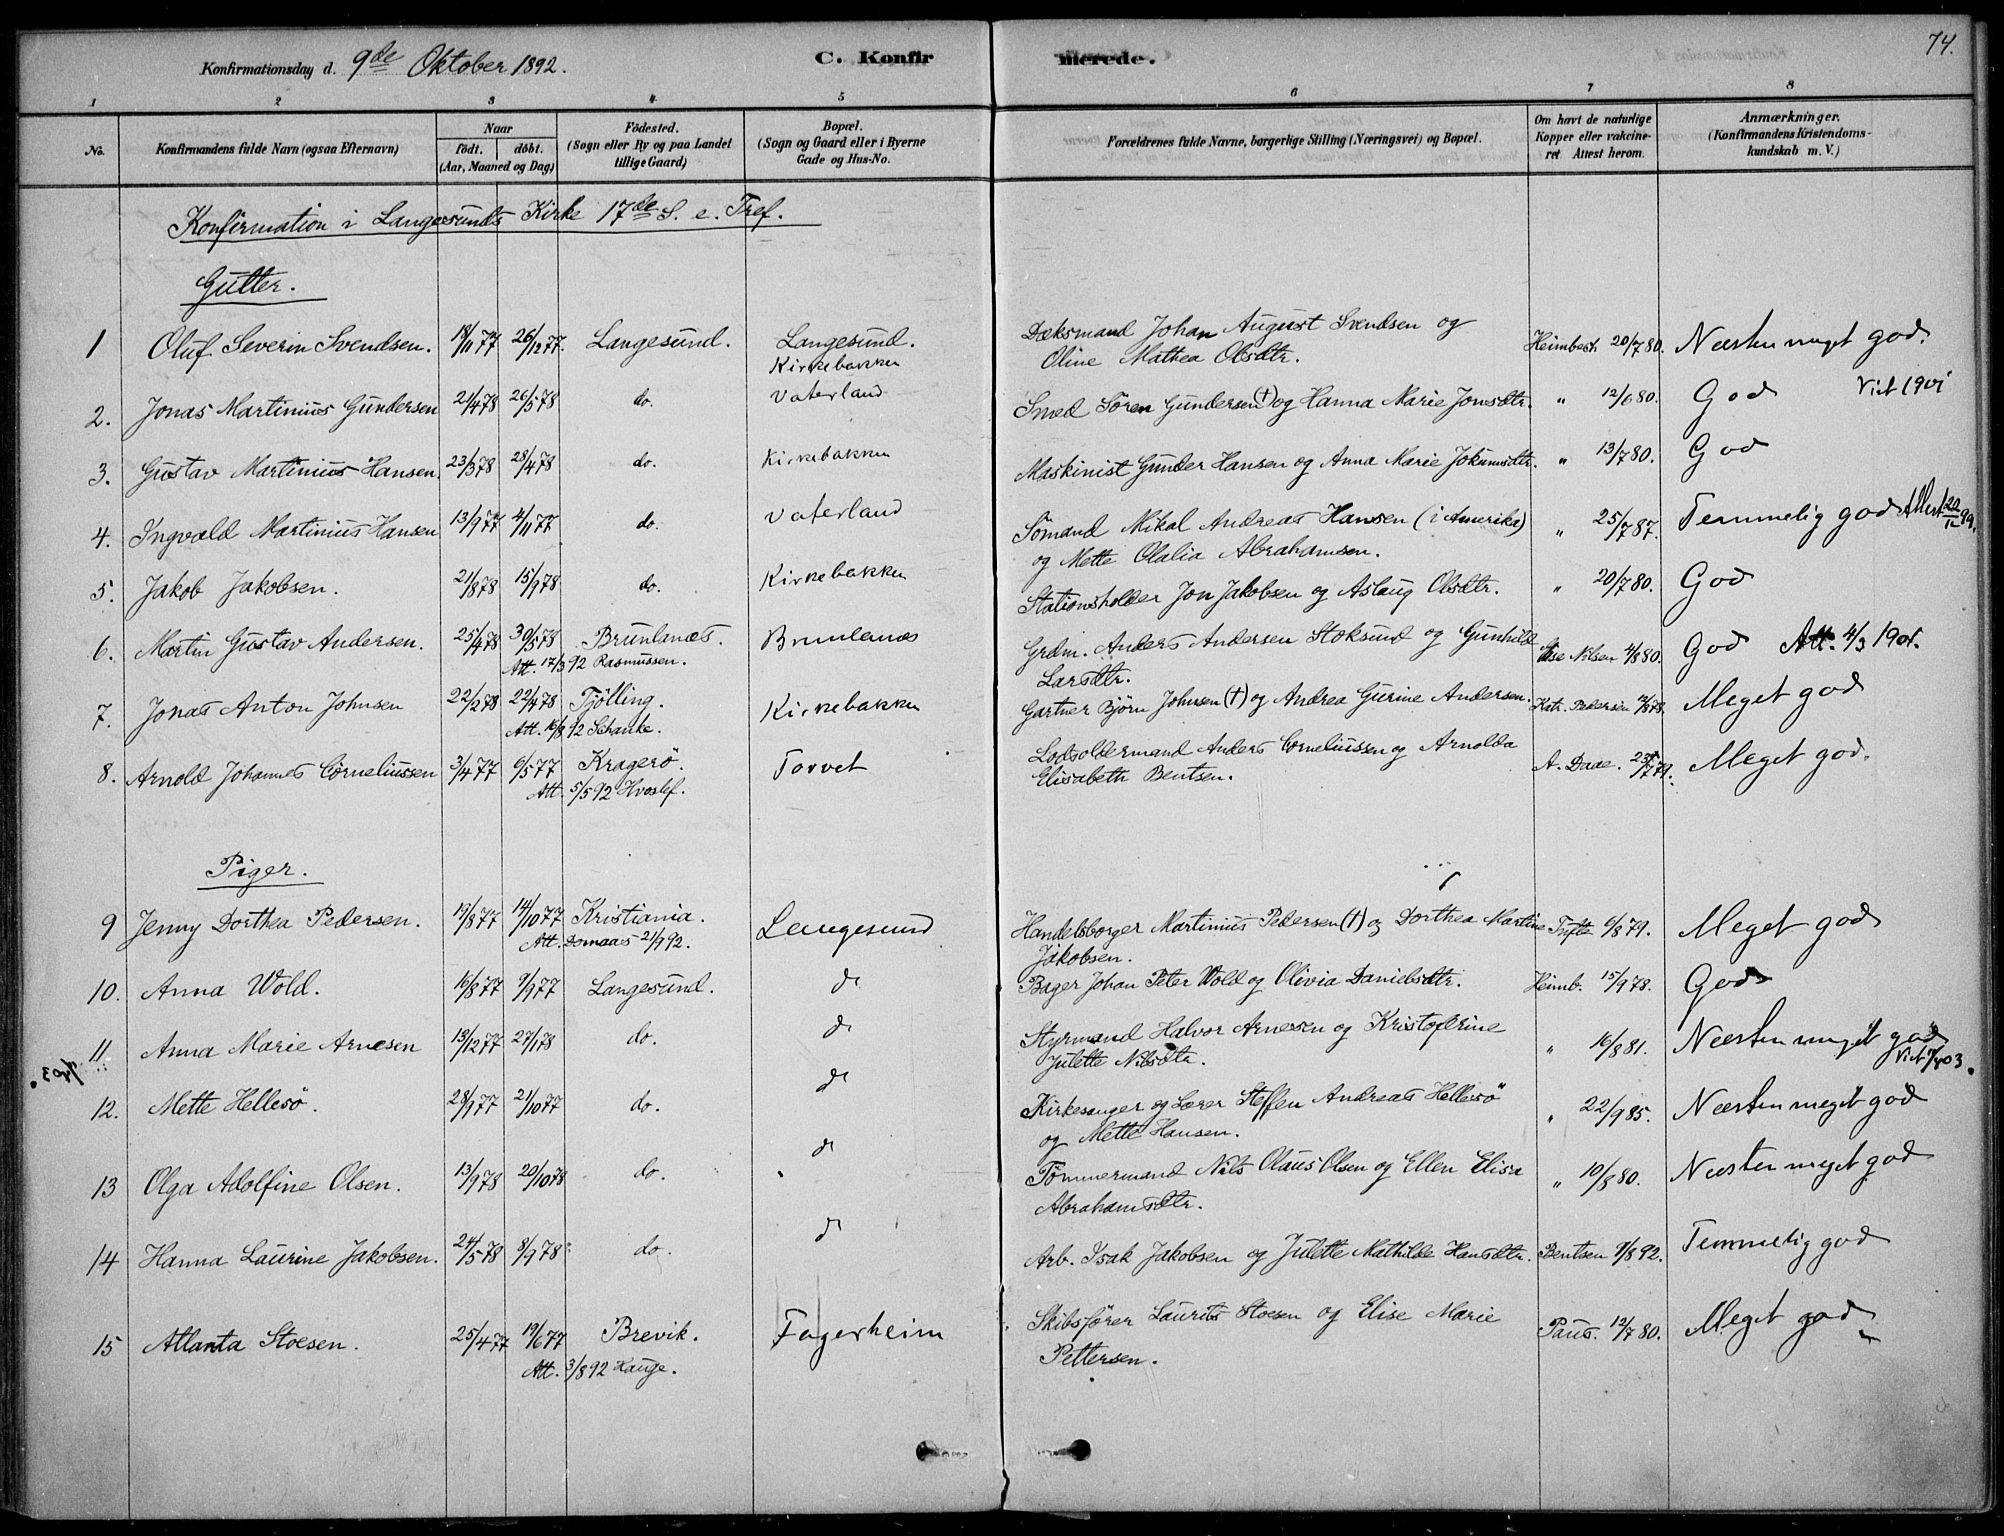 74.
Konfirmationsdag d. 9de Oktober 1892.
C. Konfirmerede.
1 2 3 4 5 6 7 8
No.
Konfirmandens fulde Navn (ogsaa Efternavn)
Naar
født. døbt.
(Aar, Maaned og Dag)
Fødested.
(Sogn eller By og paa Landet
tillige Gaard)
Bopæl.
(Sogn og Gaard eller i Byerne
Gade og Hus-No.
Forældrenes fulde Navne, borgerlige Stilling (Næringsvei) og Bopæl.
Om havt de naturlige
Kopper eller vakcine-
ret Attest herom.
Anmærkninger.
(Konfirmandens Kristendoms-
kundskab m. V.)
Konfirmation i Langesunds Kirke 17de S. e. Tref.
Gutter.
1 Oluf Severin Svendsen. 18/11 77 26/12 77. Langesund. Langesund. Dæksmand Johan August Svendsen og Heimbeck 20/7 80. Næsten meget god.
Kirkebakken Oline Mathea Olsdtr.
2. Jonas Martinius Gundersen 21/4 78 26/5 78 do. Vaterland Smed Søren Gundersen (†) og Hanna Marie Jonsdtr. " 12/6 80. God Viet 1901
3. Gustav Martinius Hansen. 23/3 78 28/4 78 do. Kirkebakken Maskinist Gunder Hansen og Anna Marie Jokumsdtr. " 13/7 80. God
4. Ingvald Martinius Hansen 13/9 77 4/11 77 do. Vaterland Sømand Mikal Andreas Hansen (i Amerika) " 25/7 87. Temmelig god Attest 22/12 99.
og Mette Olalia Abrahamsen.
5. Jakob Jakobsen. 21/8 78 15/9 78 do. Kirkebakken Stationsholder Jon Jakobsen og Aslaug Olsdtr. " 20/7 80. God
6. Martin Gustav Andersen. 25/4 78 30/5 78 Brunlanæs. Brunlanæs Grdm. Anders Andersen Stoksund og Gunhild Nilsen 4/8 80. God Att. 4/3 1901.
Att. 17/3 92 Rasmussen. Larsdtr.
7. Jonas Anton Johnsen 22/2 78 22/4 78 Tjølling. Kirkebakken Gartner Bjørn Johnsen (†) og Andrea Gurine Andersen. Katr. Pedersen 78. Meget god
Att. 16/8 92 Schanke.
8. Arnold Johannes Corneliussen 3/4 77 6/5 77 Kragerø. Torvet Lodsoldermand Anders Corneliussen og Arnolda A. Daae. 25/7 79. Meget god.
Att. 5/5 92 Hvoslef. Elisabeth Bentsen.
Piger.
9 Jenny Dorthea Pedersen. 15/8 77 14/10 77 Kristiania. Langesund Handelsborger Martinius Pedersen (†) og Dorthea Martine Tufte 6/8 79. Meget god
Att. Domaas 2/9 92. Jakobsen.
10. Anna Wold. 16/8 77 9/9 77 Langesund. do Bager Johan Peter Wold og Olivia Danielsdtr. Heimb. 15/9 78. God
11 Anna Marie Arnesen 13/12 77 27/1 78 do. do Styrmand Halvor Arnesen og Kristoferine " 16/8 81. Næsten meget god
Julette Nilsdtr. Viet 03.
12. Mette Hellesö. 28/9 77 21/10 77 do. do Kirkesanger og Lærer Steffen Andreas Hellesö " 22/9 85. Næsten meget god
og Mette Hansen.
13 Olga Adolfine Olsen. 13/9 78 20/10 78 do. do Tømmermand Nils Olaus Olsen og Ellen Elisa " 10/8 80. Næsten meget god
Abrahamsdtr.
14 Hanna Laurine Jakobsen. 24/5 78 8/9 78 do. do Arb. Isak Jakobsen og Julette Mathilde Hansdtr. Bentsen 9/8 92. Temmelig god
15 Atlanta Stoesen. 25/4 77 19/6 77 Brevik. Fagerheim Skibsfører Laurits Stoesen og Elise Marie Paus. 12/7 80. Meget god
Att. 3/8 92 Hauge. Pettersen.